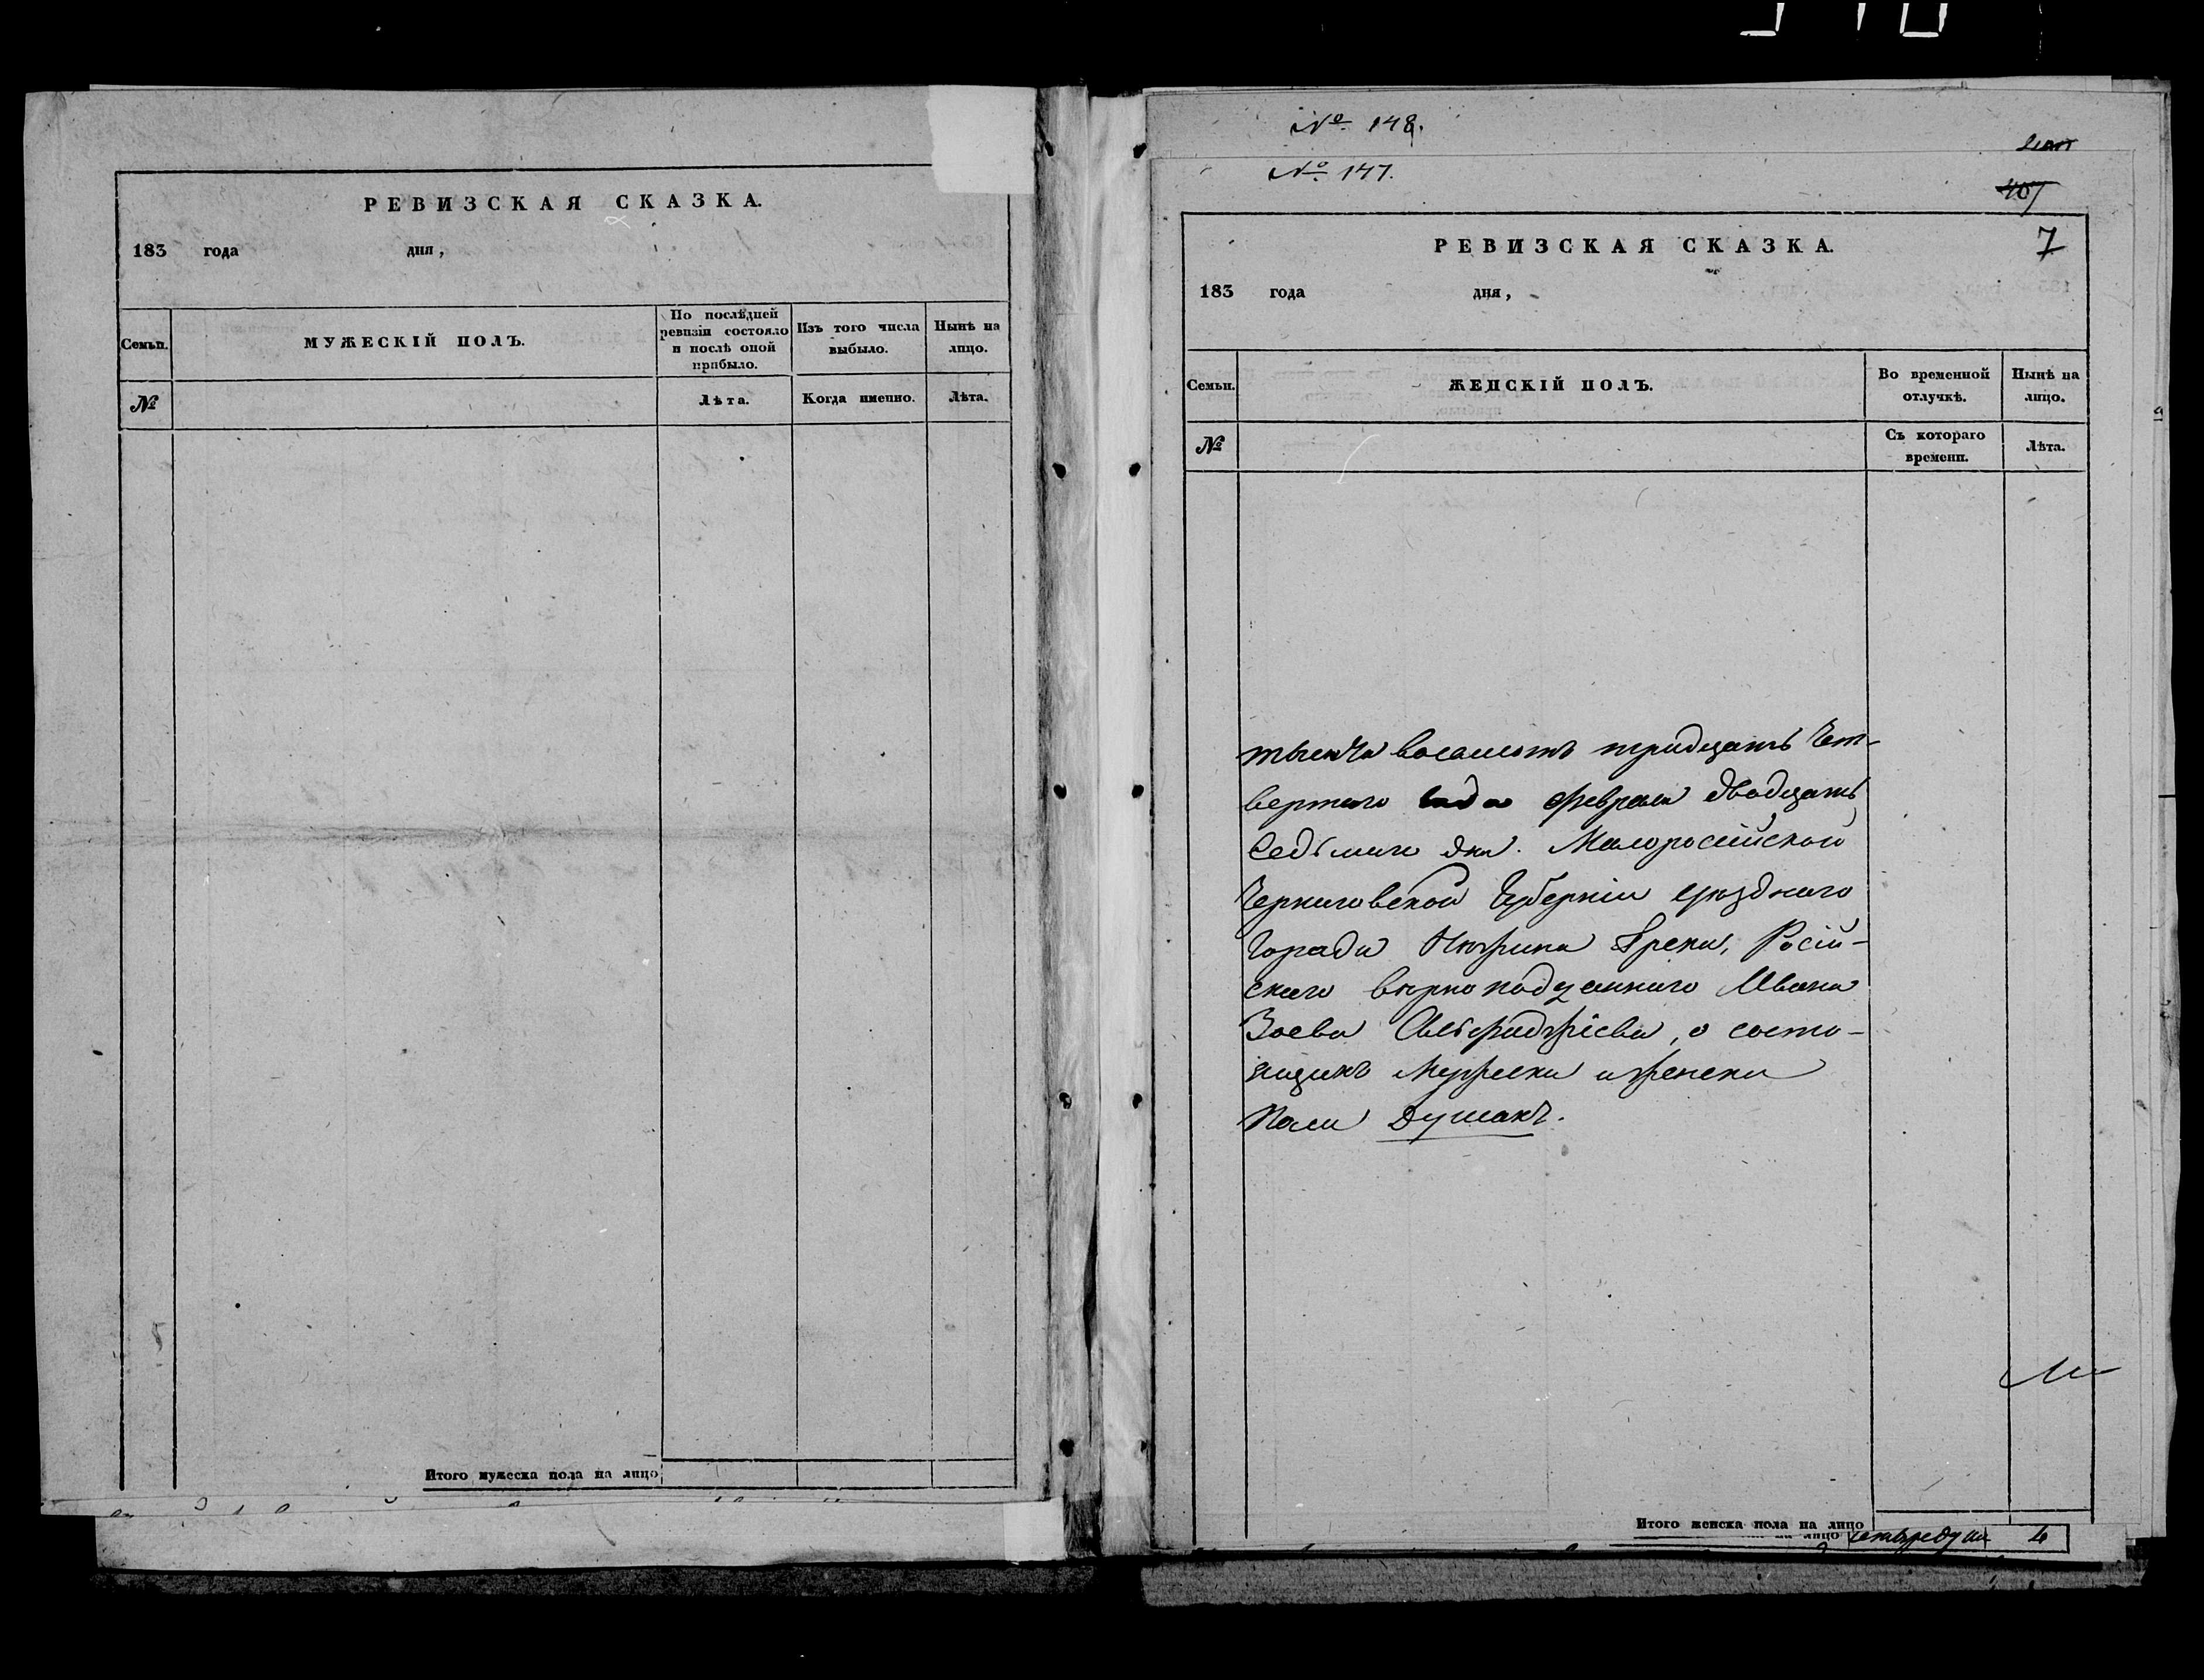 РЕВИЗСКАЯ СКАЗКА.
183 года дня,
Семьи.
МУЖЕСКІЙ ПОЛЪ.
По послѣдней ревизіи состояло и послѣ оной прибыло.
Изъ того числа выбыло.
Нынѣ на лицо.
№
Лѣта.
Когда именно.
Лѣта.
Итого мужеска пола на лицо
№ 148.
№ 147.
407
7
РЕВИЗСКАЯ СКАЗКА.
183 года дня,
Семьи.
ЖЕНСКІЙ ПОЛЪ.
Во временной отлучкѣ.
Нынѣ на лицо.
№
Съ котораго времени.
Лѣта.
тысяча восемсотъ тридцать чет-
вертаго года февраля двадцать
седьмаго дня. Малоросійской
Черниговской Губерніи уѣзднаго
города Нѣжина Грека, Росій-
скаго вѣрноподданнаго Ивана
Зоева, о состо-
ящихъ мужеска и женска
пола душахъ.
Итого женска пола на лицо
на лицо
4